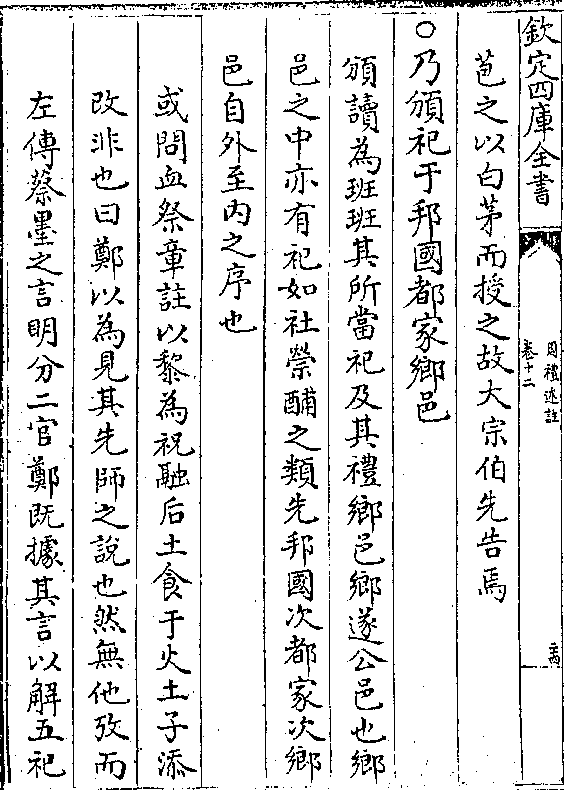 欽定四庫全書
周禮述註
卷十二
苞之以白茅而授之故大宗伯先告焉
○乃頒祀于邦國都家鄉邑
頒讀為班班其所當祀及其禮鄉邑鄉遂公邑也鄉
邑之中亦有祀如社禜酺之類先邦國次都家次鄉
邑自外至內之序也
或問血祭章註以黎為祝融后土食于火土子添
改非也曰鄭以為見其先師之說也然無他攷而
左傳蔡墨之言明分二官鄭既據其言以解五祀